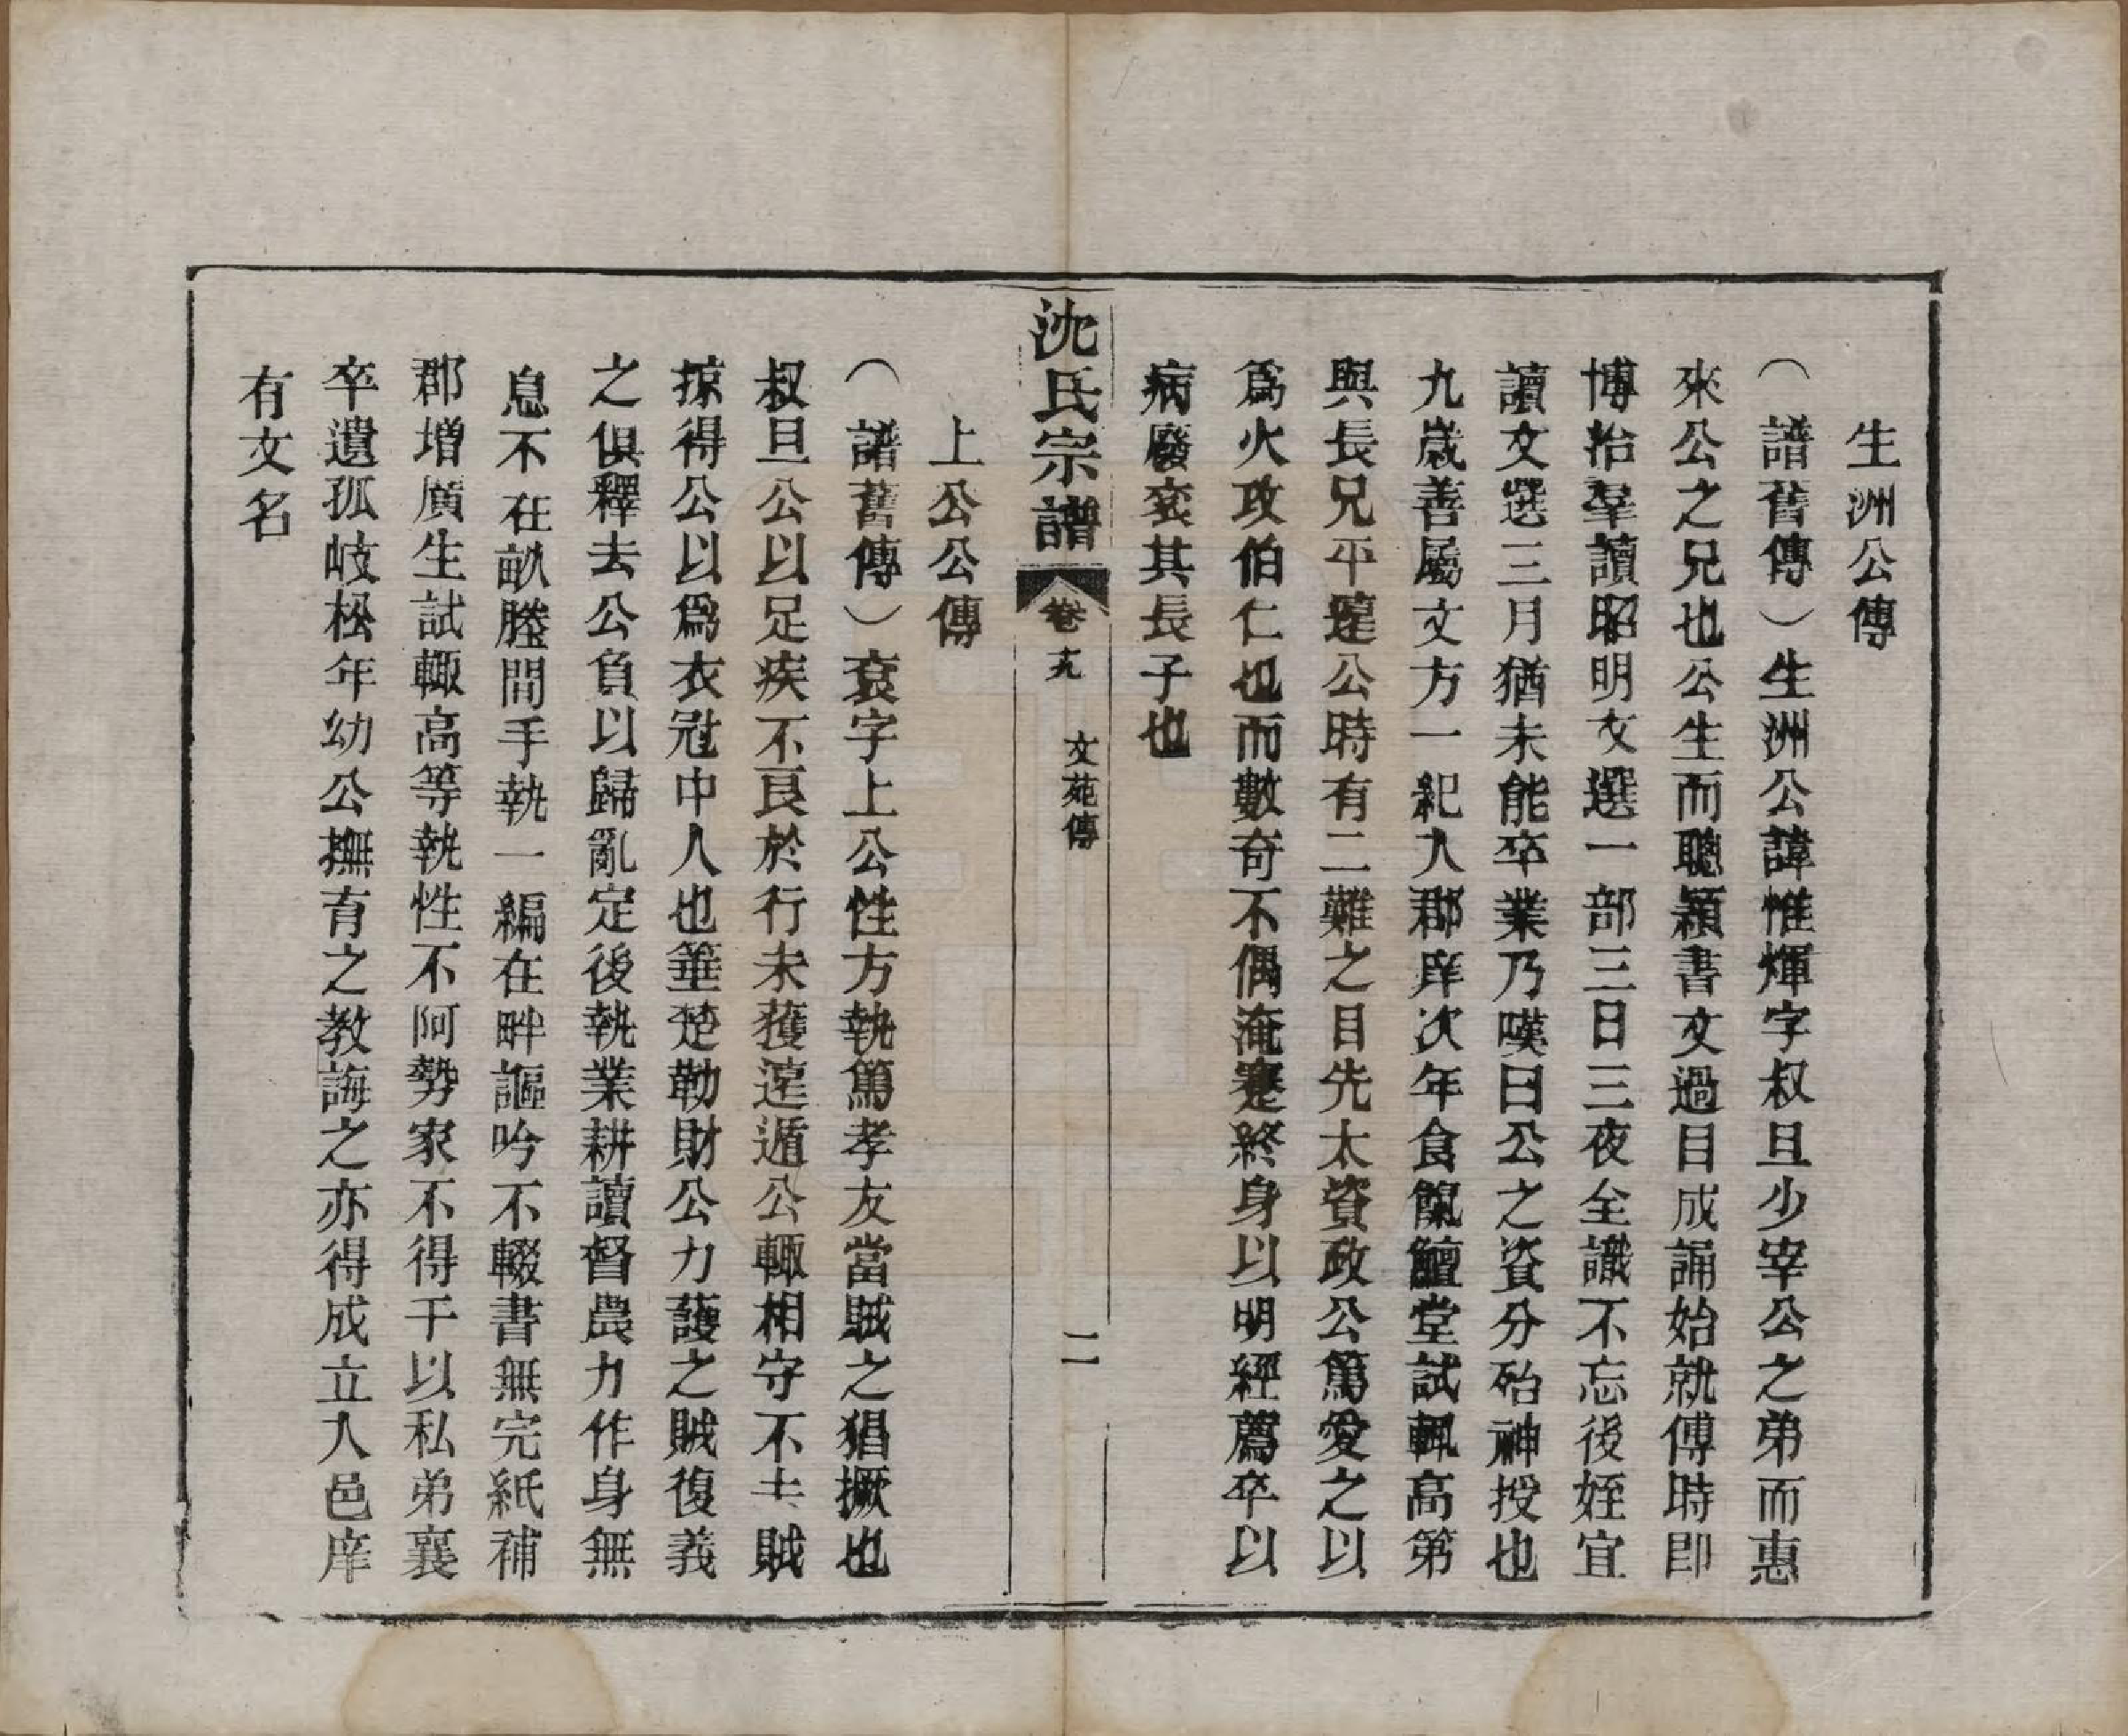 生洲公傳
（譜舊傳）生洲公諱惟煇字叔旦少宰公之弟而惠
來公之兄也公生而聰穎書文過目成誦始就傅時即
博洽羣讀昭明文選一部三日三夜全識不忘後姪宜
讀文選三月猶未能卒業乃嘆曰公之資分殆神授也
九歲善屬文方一紀入郡庠次年食餼鱣堂試輒高第
與長兄平蘧公時有二難之目先太資政公篤愛之以
爲火攻伯仁也而數奇不偶淹蹇終身以明經薦卒以
病廢袞其長子也
沈氏宗譜
卷十九
文苑傳
二
上公公傳
（譜舊傳）袞字上公性方執篤孝友當賊之猖撅也
叔旦公以足疾不良於行未獲遠遁公輒相守不去賊
掠得公以爲衣冠中人也箠楚勒財公力護之賊復義
之俱釋去公負以歸亂定後執業耕讀督農力作身無
息不在畝塍間手執一編在畔謳吟不輟書無完紙補
郡增廣生試輒高等執性不阿勢家不得干以私弟襄
卒遺孤岐松年幼公撫育之教誨之亦得成立入邑庠
有文名